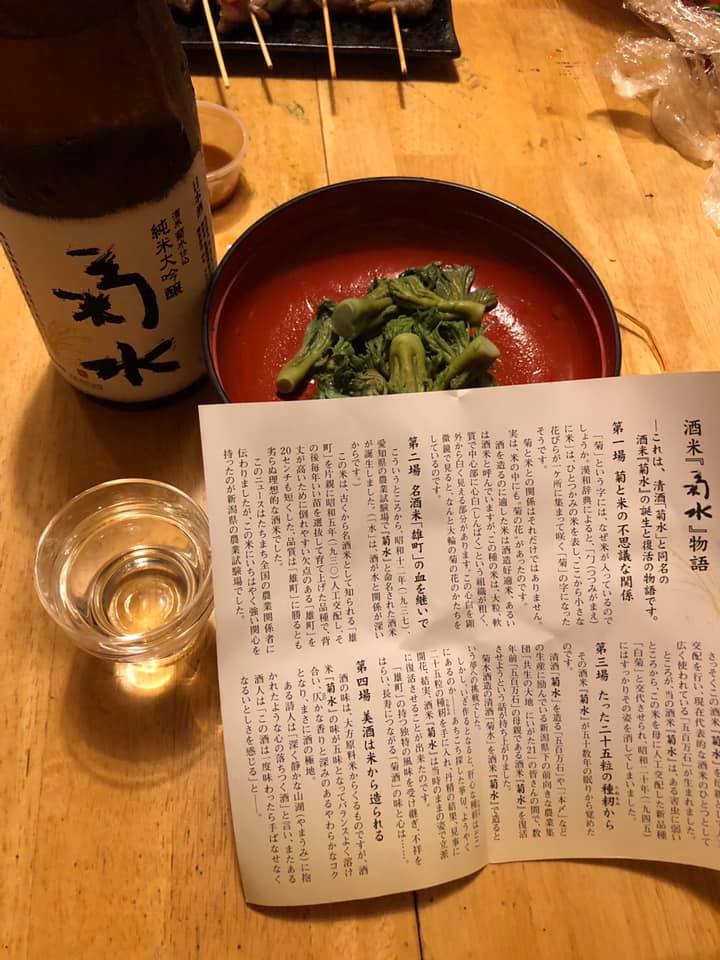 日本酒
酒米菊水仕込
純米大吟醸
菊水
酒米『菊水』物語
―これは、清酒『菊水』と同名の
酒米『菊水』の誕生と復活の物語です。
第一場 菊と米の不思議な関係
「菊」という字には、なぜ米が入っているので
しょうか。漢和辞典によると、「勹(つつみがまえ)
に米」は、ひとつかみの米を表し、ここから小さな
花びらが一ケ所に集まって咲く「菊」の字になった
そうです。
菊と米との関係はそれだけではありません。
実は、米の中にも〝菊の花〟があったのです。
酒を造るのに適した米は酒造好適米、あるい
は酒米と呼んでいますが、この種の米は、大粒、軟
質で中心部に心白(しんぱく)という組織が粗く、
外から白く見える部分があります。この心白を顕
微鏡で見ると、なんと大輪の菊の花のかたちを
しているのです。
第二場 名酒米「雄町」の血を継いで
こういうところから、昭和十二年(一九三七)、
愛知県の農業試験場で『菊水』と命名された酒米
が誕生しました。(「水」は、酒が水と関係が深い
からです。)
この米は、古くから名酒米として知られる「雄
町」を片親に昭和五年(一九三〇)人工交配し、そ
の後毎年いい苗を選抜して育て上げた品種で、背
丈が高いために倒れやすい欠点のある「雄町」を
20センチも短くした、品質は「雄町」に勝るとも
劣らぬ理想的な酒米でした。
このニュースはたちまち全国の農業関係者に
伝わりましたが、この米にいちはやく強い関心を
持ったのが新潟県の農業試験場でした。
さっそくこの酒米『菊水』を
交配を行い、現在代表的な酒米のひとつとして
広く使われている「五百万石」が生まれました。
ところが、当の酒米『菊水』は、ある害虫に弱い
ところから、この米を母に人工交配した新品種
「白菊」と交代させられ、昭和二十年(一九四五)
にはすっかりその姿を消してしまいました。
第三場 たった二十五粒の種籾から
その酒米『菊水』が五十数年の眠りから覚めた
のです。
清酒『菊水』を造る「五百万石」や「一本〆」など
の生産に励んでいる新潟県下の前向きな農業集
団「共生の大地」にいがた21」の皆さんの間で、数
年前「五百万石」の母親である酒米『菊水』を復活
させようという話が持ち上がりました。
菊水酒造の清酒『菊水』を酒米『菊水』で造ると
いう夢への挑戦でした。
しかし、いざ作るとなると、肝心な種籾はどこ
にあるのか…。あちこち探した挙句、ようやく
二十五粒の種籾を手に入れ、丹精の結果、見事に
開花、結実、酒米『菊水』は当時のままの姿で立派
に復活させることが出来たのです。
「雄町」の持つ独特の風味を受け継ぎ、不祥を
はらい、長寿につながる「菊酒」の味と心は……。
第四場 美酒は米から造られる
酒の味は、大方原料米からくるものですが、酒
米『菊水』の味が五味となってバランスよく溶け
合い、仄かな香りと深みのあるやわらかなコク
となり、まさに酒の極地。
ある詩人は「深く静かな山湖(やまうみ)に抱
かれたような心の落ちつく酒」と言い、またある
酒人は「この酒は一度味わったら手ばなせなく
なるいとしさを感じる」と―。